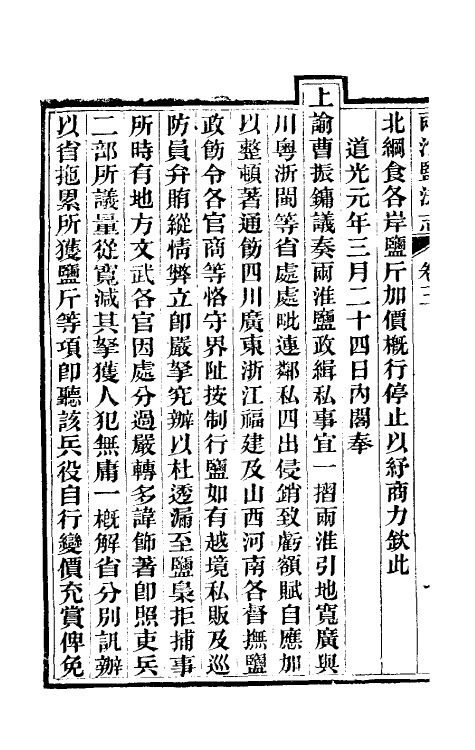 兩淮鹽法志 卷三
北綱食各岸鹽斤加價槪行停止以紓商力欽此
道光元年三月二十四日內閣奉
上諭曹振鏞議奏兩淮鹽政緝私事宜一摺兩淮引地寬廣與
川粤浙閩等省處處毗連鄰私四出侵銷致虧額賦自應加
以整頓著通飭四川廣東浙江福建及山西河南各督撫鹽
政飭令各官商等恪守界址按制行鹽如有越境私販及巡
防員弁賄縱情弊立卽嚴拏究辦以杜透漏至鹽梟拒捕事
所時有地方文武各官因處分過嚴轉多諱飾著卽照吏兵
二部所議量從寬減其拏獲人犯無庸一槪解省分別訊辦
以省拖累所獲鹽斤等項卽聽該兵役自行變價充賞俾免